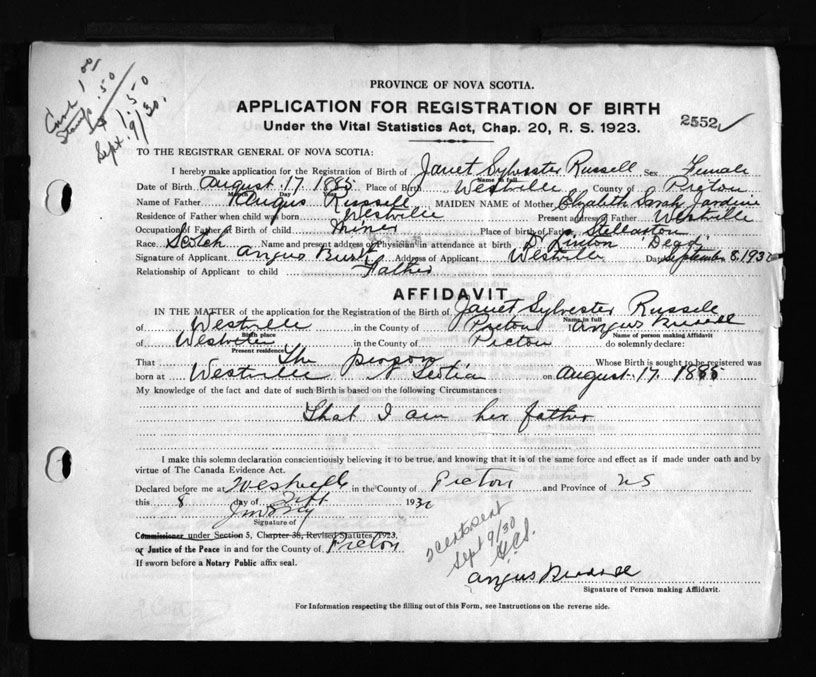 Cash 1.00
Stamps .50
1.50
Sept. 9/30.
PROVINCE OF NOVA SCOTIA.
APPLICATION FOR REGISTRATION OF BIRTH
2552
Under the Vital Statistics Act, Chap. 20, R. S. 1923.
TO THE REGISTRAR GENERAL OF NOVA SCOTIA:
I hereby make application for the Registration of Birth of Janet Sylvester Russell Sex Female
Name in full
Date of Birth August 17 1885 Place of Birth Westville County of Pictou
Month Day Year
Name of Father Angus Russell MAIDEN NAME of Mother Elizabeth Sarah Jardine
Residence of Father when child was born Westville Present address of Father Westville
Occupation of Father at Birth of child Miner Place of birth of Father Stellarton
Race Scotch Name and present address of Physician in attendance at birth
Signature of Applicant Angus Address of Applicant Westville Date September 8, 193
Relationship of Applicant to child Father
AFFIDAVIT
IN THE MATTER of the application for the Registration of the Birth of Janet Sylvester Russell
Name in full
of Westville in the County of Pictou I Angus Russell
Birth place Name of person making Affidavit
of Westville in the County of Pictou do solemnly declare:
Present residence
That The person Whose Birth is sought to be registered was
born at Westville N Scotia on August 17, 1885
My knowledge of the fact and date of such Birth is based on the following Circumstances:
That I am her father
I make this solemn declaration conscientiously believing it to be true, and knowing that it is of the same force and effect as if made under oath and by
virtue of The Canada Evidence Act.
Declared before me at Westville in the County of Pictou and Province of NS
this 8 day of Sept 193
Signature of
Commissioner under Section 5, Chapter 38, Revised Statutes, 1923,
or Justice of the Peace in and for the County of Pictou
If sworn before a Notary Public affix seal.
Sept 9/30
Angus Russell
Signature of Person making Affidavit.
For Information respecting the filling out of this Form, see Instructions on the reverse side.